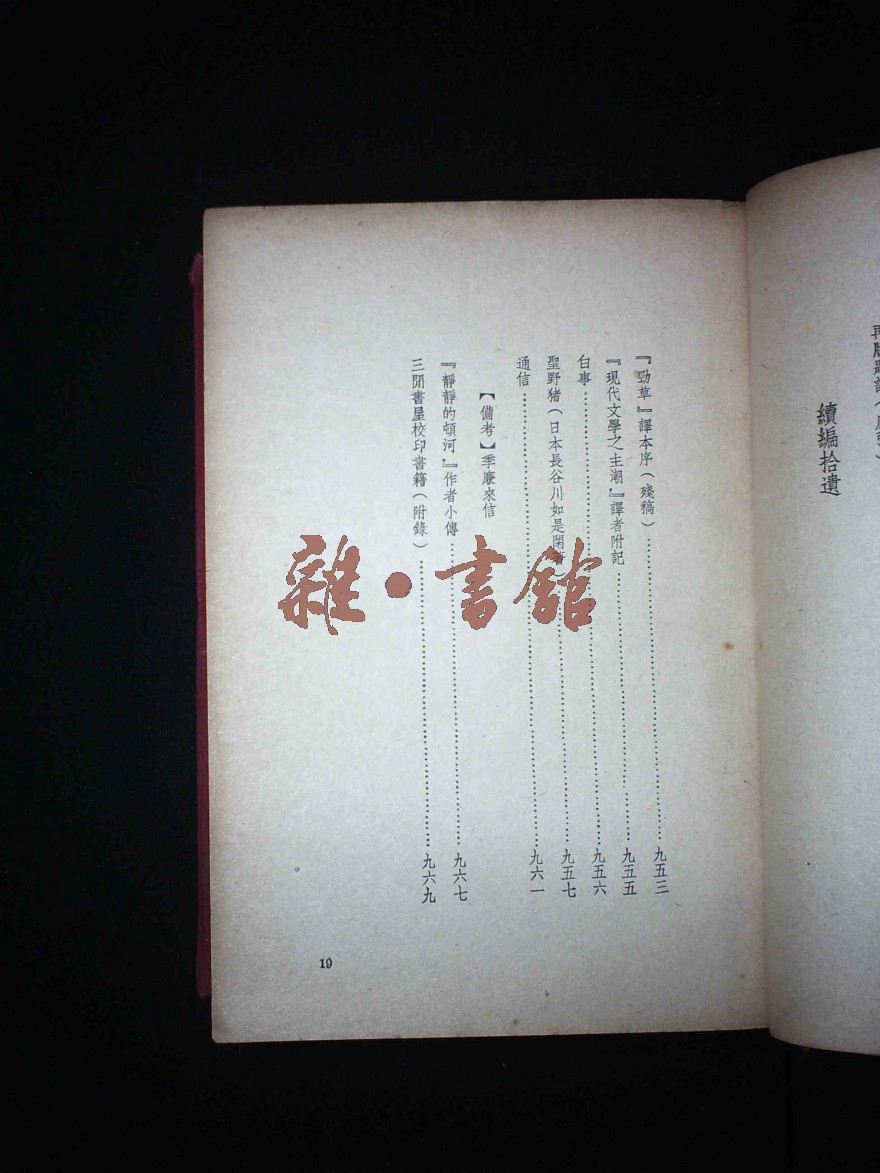 續編拾遺
『勁草』譯本序(殘稿)……九五三
『現代文學之主潮』譯者附記……九五五
白事……九五六
聖野猪(日本長谷川如是閑……九五七
通信……九六一
【備考】季廉來信
『靜靜的頓河』作者小傳……九六七
三閒書屋校印書籍(附錄)……九六九
19
雜•書館